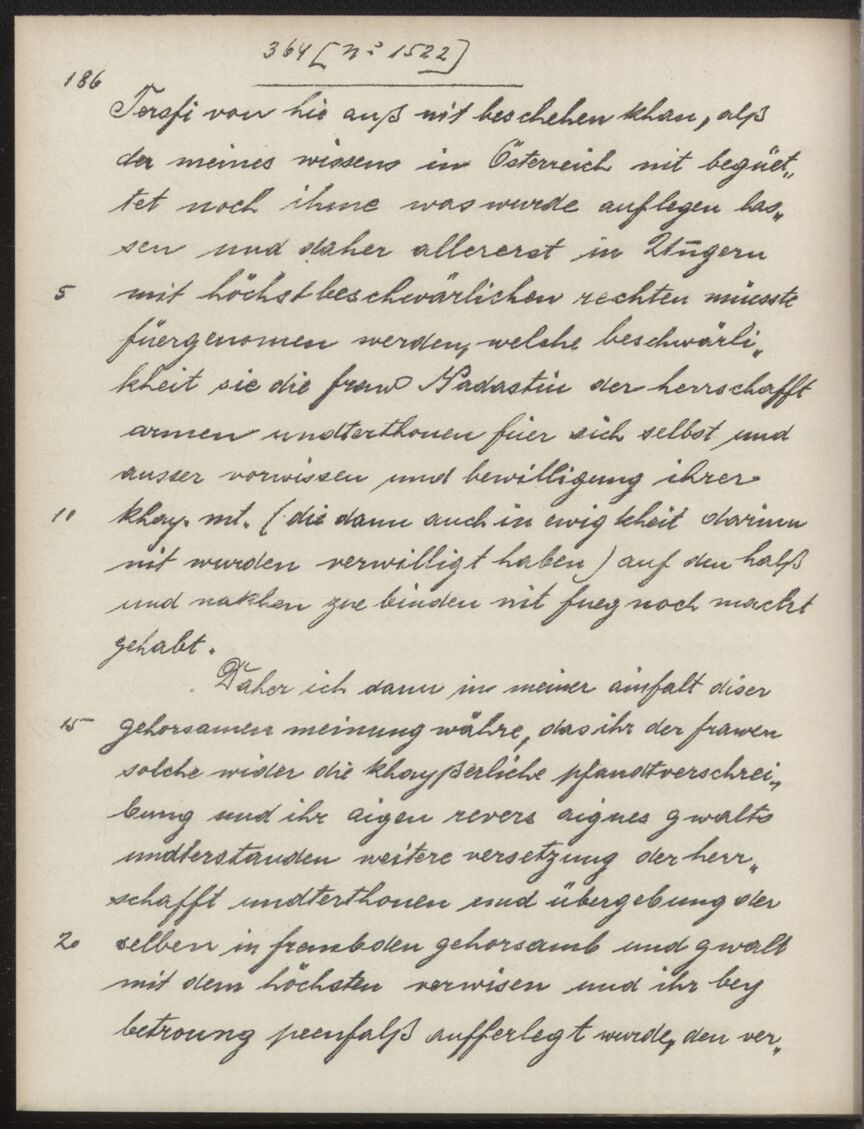 364 [No 1522]
186
Terafi von hie auß nit beschehen khan, alß
der meines wissens in Österreich nit begüet„
tet noch ihme was wurde auflegen las„
sen und daher allererst in Ungern
5 mit höchstbeschwärlichen rechten müesste
füergenomen werden, welche beschwärli„
kheit sie die fraw Nadastin der herrschafft
armen undterthonen füer sich selbst und
ausser vorwissen und bewilligung ihrer
10 khay. mt. (die dann auch in ewigkheit darinn
nit wurden verwilligt haben) auf den halß
und nakhen zue binden nit fueg noch macht
gehabt.
Daher ich dann in meiner ainfalt diser
15 gehorsamen meinung währe, das ihr der frawen
solche wider die khayßerliche pfandtverschrei„
bung und ihr aigen revers aignes gwalts
undterstanden weitere versetzung der herr„
schafft undterthonen und übergebung der
20 selben in frembden gehorsamb und gwalt
mit dem höchsten verwisen und ihr bey
betroung peenfalß aufferlegt wurde, den ver„